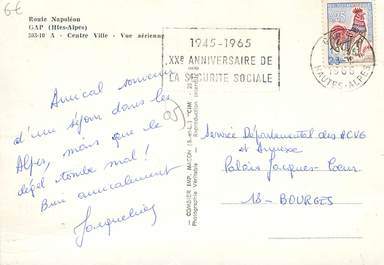 6€
Route Napoléon
GAP (Htes-Alpes)
303-10 A - Centre Ville - Vue aérienne
1945-1965
XXe ANNIVERSAIRE DE
LA SECURITE SOCIALE
HAUTES-ALPES
Amical souvenir
d'un séjour dans les
Alpes, mais que le (05)
dégel tombe mal!
Bien amicalement
COMBIER IMP. MACON (S.-et-L.) "CIM"
Photographie Véritable - Reproduction
Service Départemental des ACVG
et Annexe
Palais Jacques-Cœur
18 - BOURGES